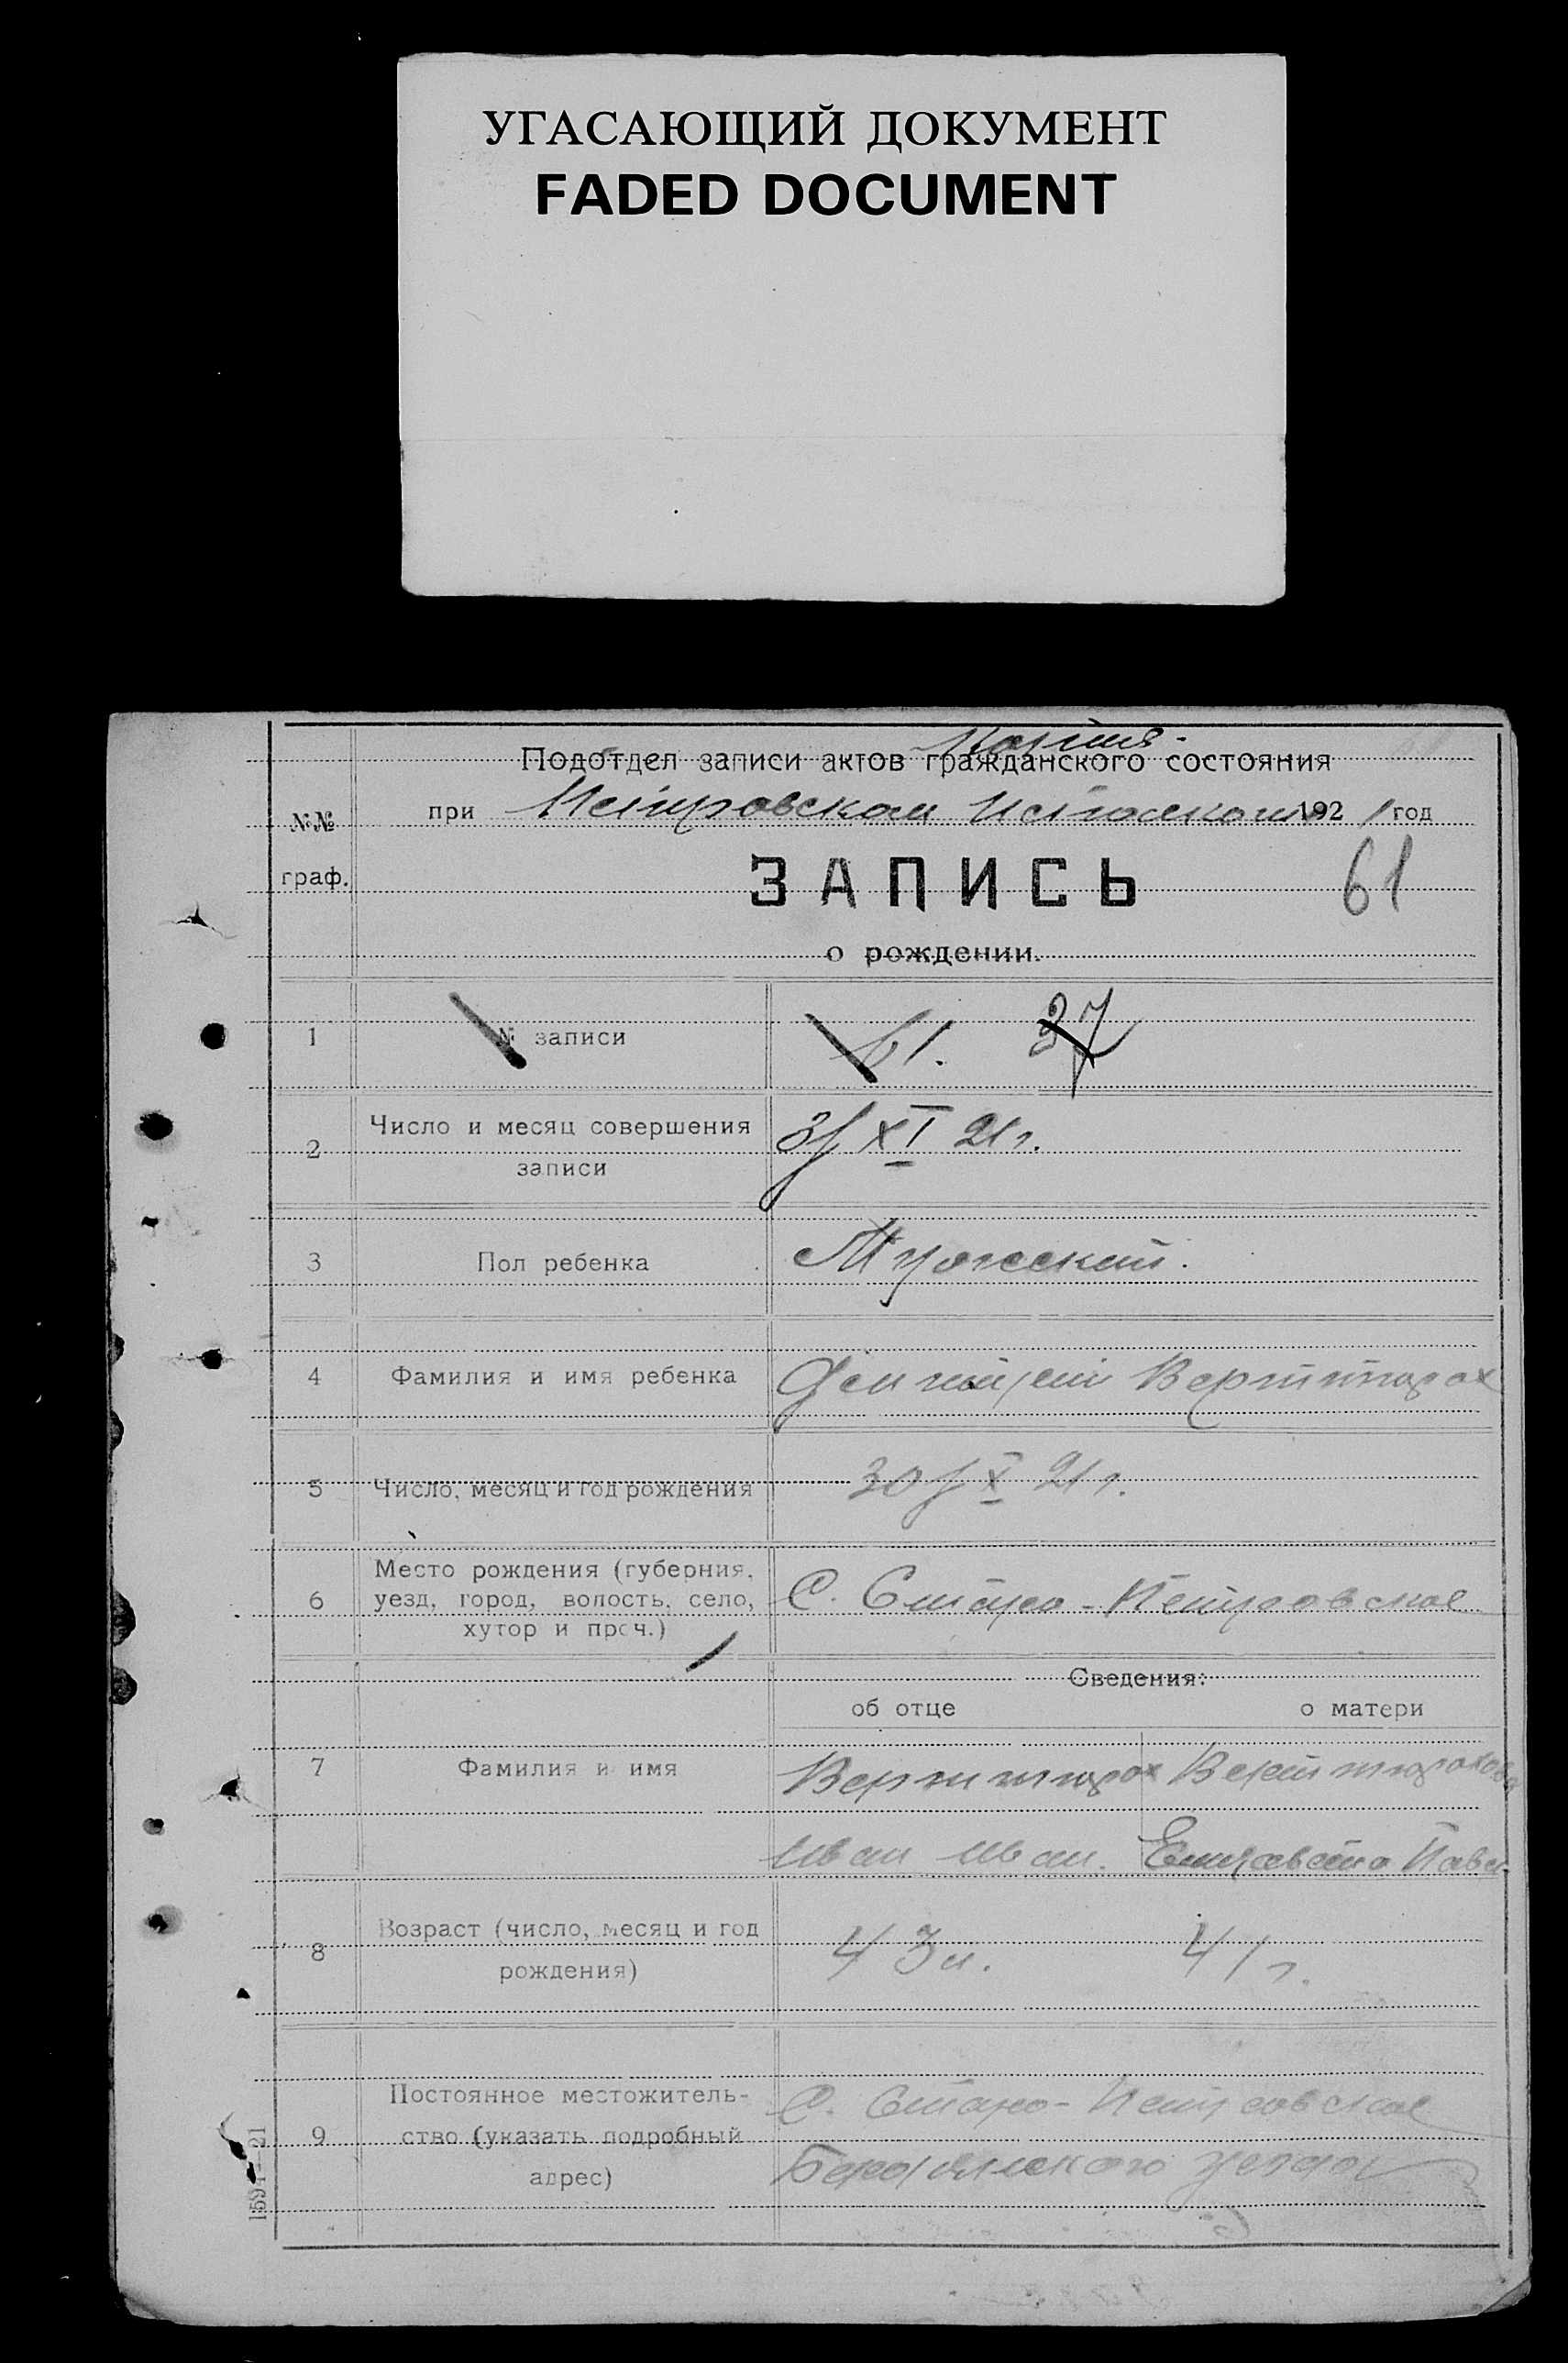 УГАСАЮЩИЙ ДОКУМЕНТ
FADED DOCUMENT
Копия.
Подотдел записи актов гражданского состояния
№№ граф.
при Петровском Исполкоме 1921 год
61
ЗАПИСЬ
о рождении.
1 № записи 61. 37
2 Число и месяц совершения записи 3/XI 21 г.
3 Пол ребенка Мужеский.
4 Фамилия и имя ребенка Димитрий
5 Число, месяц и год рождения 30/X 21 г.
6 Место рождения (губерния, уезд, город, волость, село, хутор и проч.) С. Старо-Петровское
Сведения:
об отце о матери
7 Фамилия и имя
Иван Иван. Елизавета Павл.
8 Возраст (число, месяц и год рождения) 43 л. 41 г.
9 Постоянное местожительство (указать подробный адрес) С. Старо-Петровское
Бердянского уезда